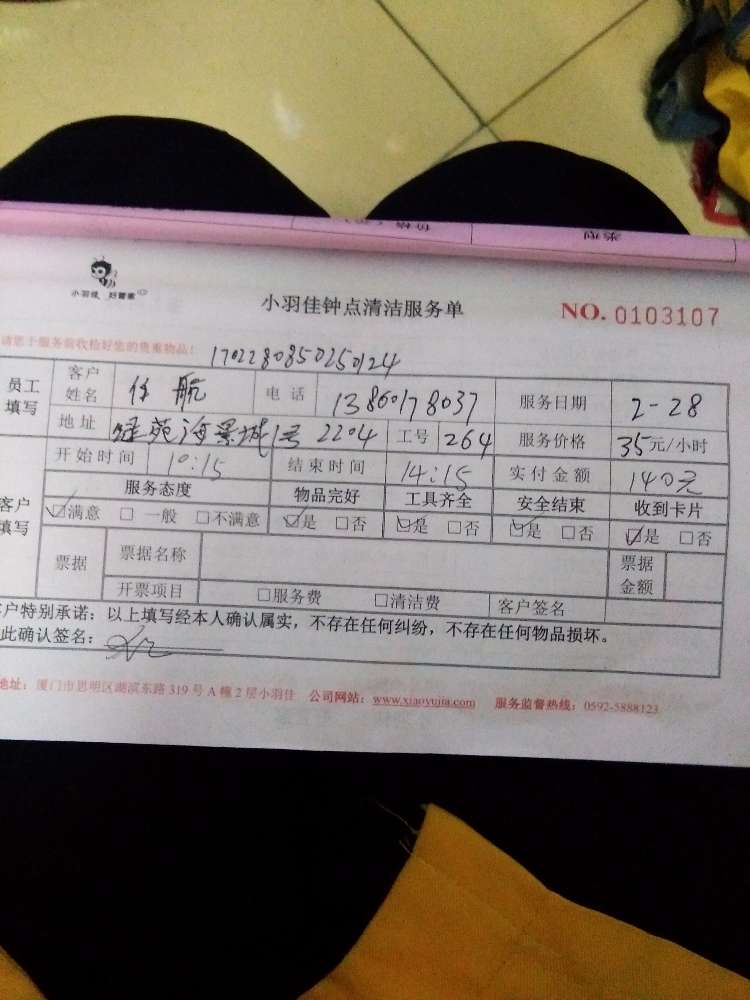 价格(元) 类型
小羽佳 好管家
小羽佳钟点清洁服务单
NO. 0103107
请您于服务前收检好您的贵重物品!
1702280850250124
员工填写 客户姓名 任航 电话 13860178037 服务日期 2-28
地址 绿苑海景城1号2204 工号 264 服务价格 35元/小时
客户填写 开始时间 10:15 结束时间 14:15 实付金额 140元
服务态度 物品完好 工具齐全 安全结束 收到卡片
☑满意 □一般 □不满意 ☑是 □否 ☑是 □否 ☑是 □否 ☑是 □否
票据 票据名称 票据金额
开票项目 □服务费 □清洁费 客户签名
客户特别承诺:以上填写经本人确认属实,不存在任何纠纷,不存在任何物品损坏。
此确认签名:
地址:厦门市思明区湖滨东路319号A幢2层小羽佳 公司网站:www.xiaoyujia.com 服务监督热线:0592-5888123